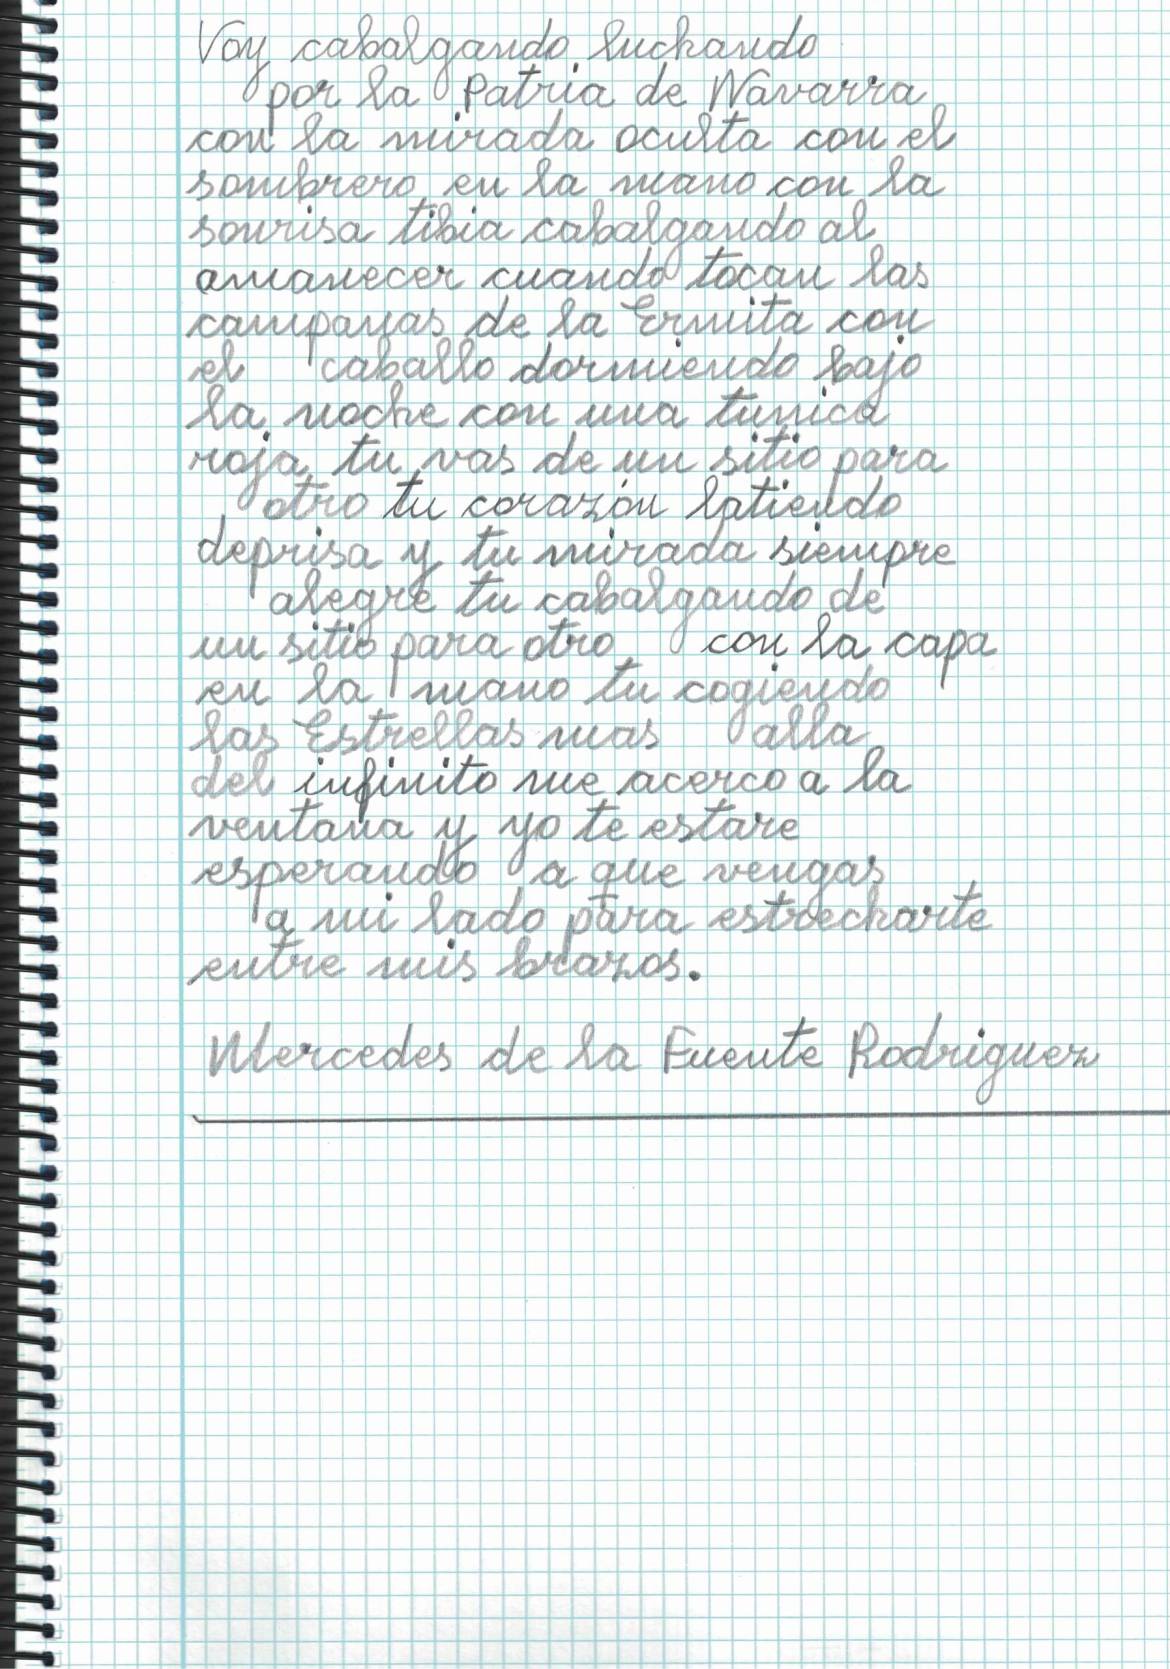 Voy cabalgando luchando
por la Patria de Navarra
con la mirada oculta con el
sombrero en la mano con la
sonrisa tibia cabalgando al
amanecer cuando tocan las
campanas de la Ermita con
el caballo dormiendo bajo
la noche con una tunica
roja tu vas de un sitio para
otro tu corazón latiendo
deprisa y tu mirada siempre
alegre tu cabalgando de
un sitio para otro con la capa
en la mano tu cogiendo
las Estrellas mas alla
del infinito me acerco a la
ventana y yo te estare
esperando a que vengas
a mi lado para estrecharte
entre mis brazos.
Mercedes de la Fuente Rodriguez